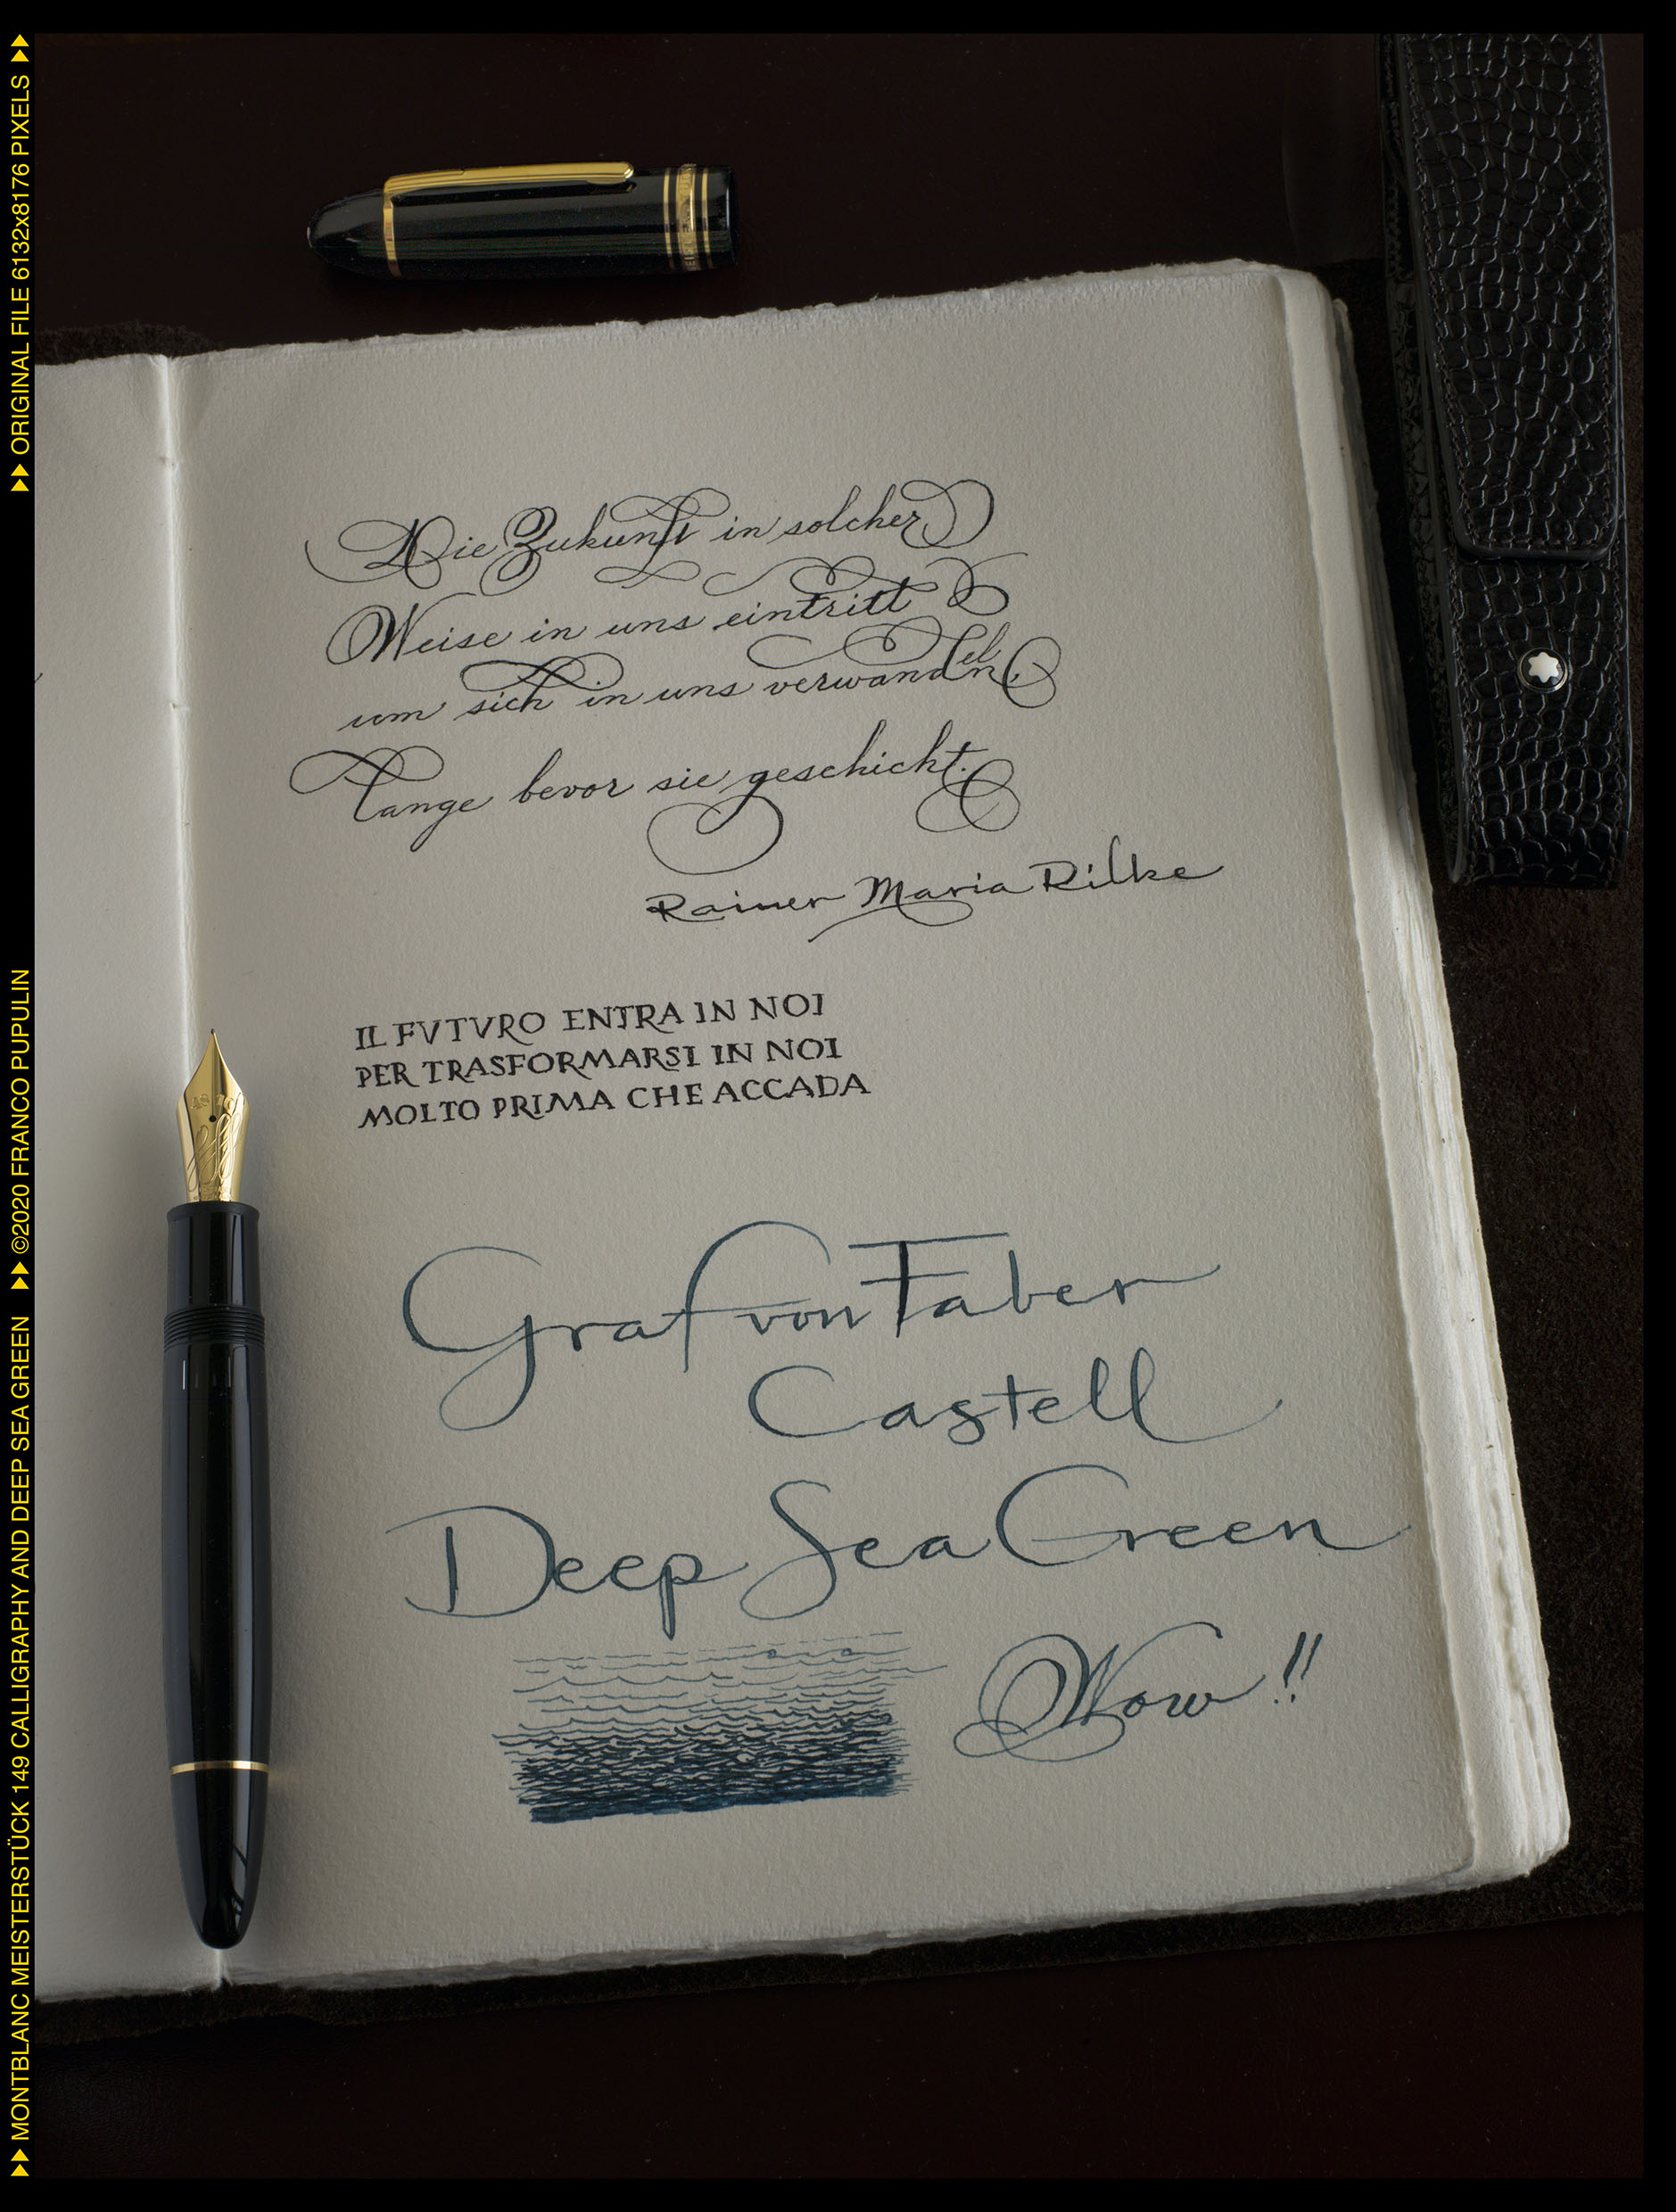 Die Zukunft in solcher
Weise in uns eintritt
um sich in uns verwandeln,
lange bevor sie geschicht.
Rainer Maria Rilke
IL FVTVRO ENTRA IN NOI
PER TRASFORMARSI IN NOI
MOLTO PRIMA CHE ACCADA
Graf von Faber
Castell
Deep Sea Green
Wow!!
MONTBLANC MEISTERSTÜCK 149 CALLIGRAPHY AND DEEP SEA GREEN ©2020 FRANCO PUPULIN ORIGINAL FILE 6132x8176 PIXELS